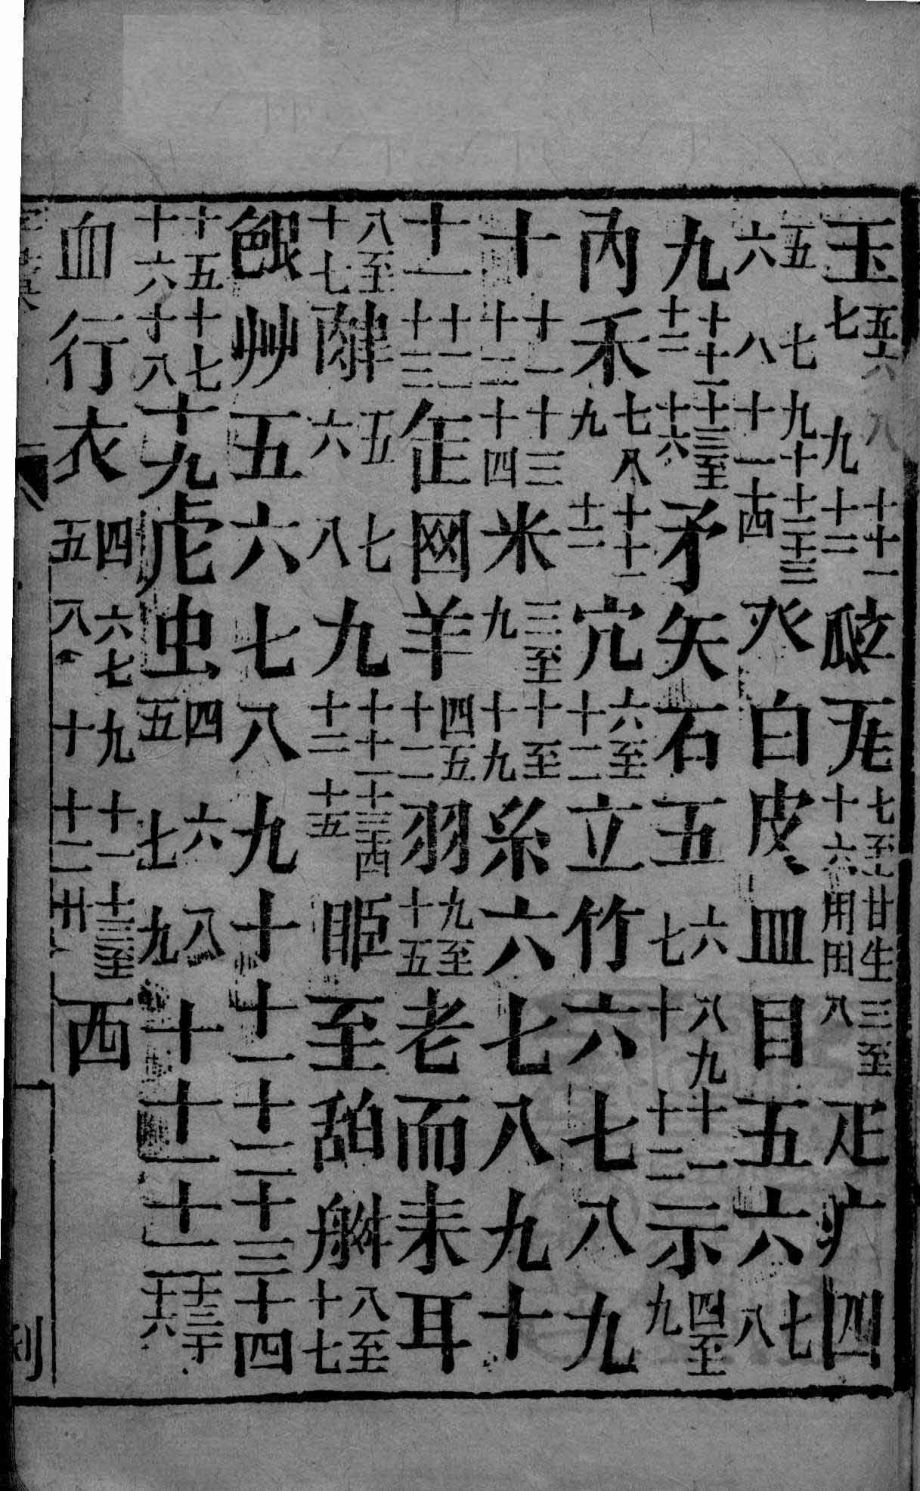 玉五六七八九十十一十二玄瓜瓦七至十六甘生用田三至八疋疒四
五六七八九十十一十二十三十四癶白皮皿目五六七八
九十十一十二十三至十六矛矢石五六七八九十十一十二示四至九
禸禾七八九十十一十二穴六至十二立竹六七八九
十十一十二十三十四米三至九十至十九糸六七八九十
十一十二十三缶网羊四五十二羽九至十五老而耒耳
八至十七聿肉五六七八九十十一十二十三十四十五臣自至臼舌舛舟八至十七
艮色艸五六七八九十十一十二十三十四
十五十六十七十八十九虍虫四五六七八九十十一十二十三十六
血行衣四五六七八九十十一十二十三至廿一西